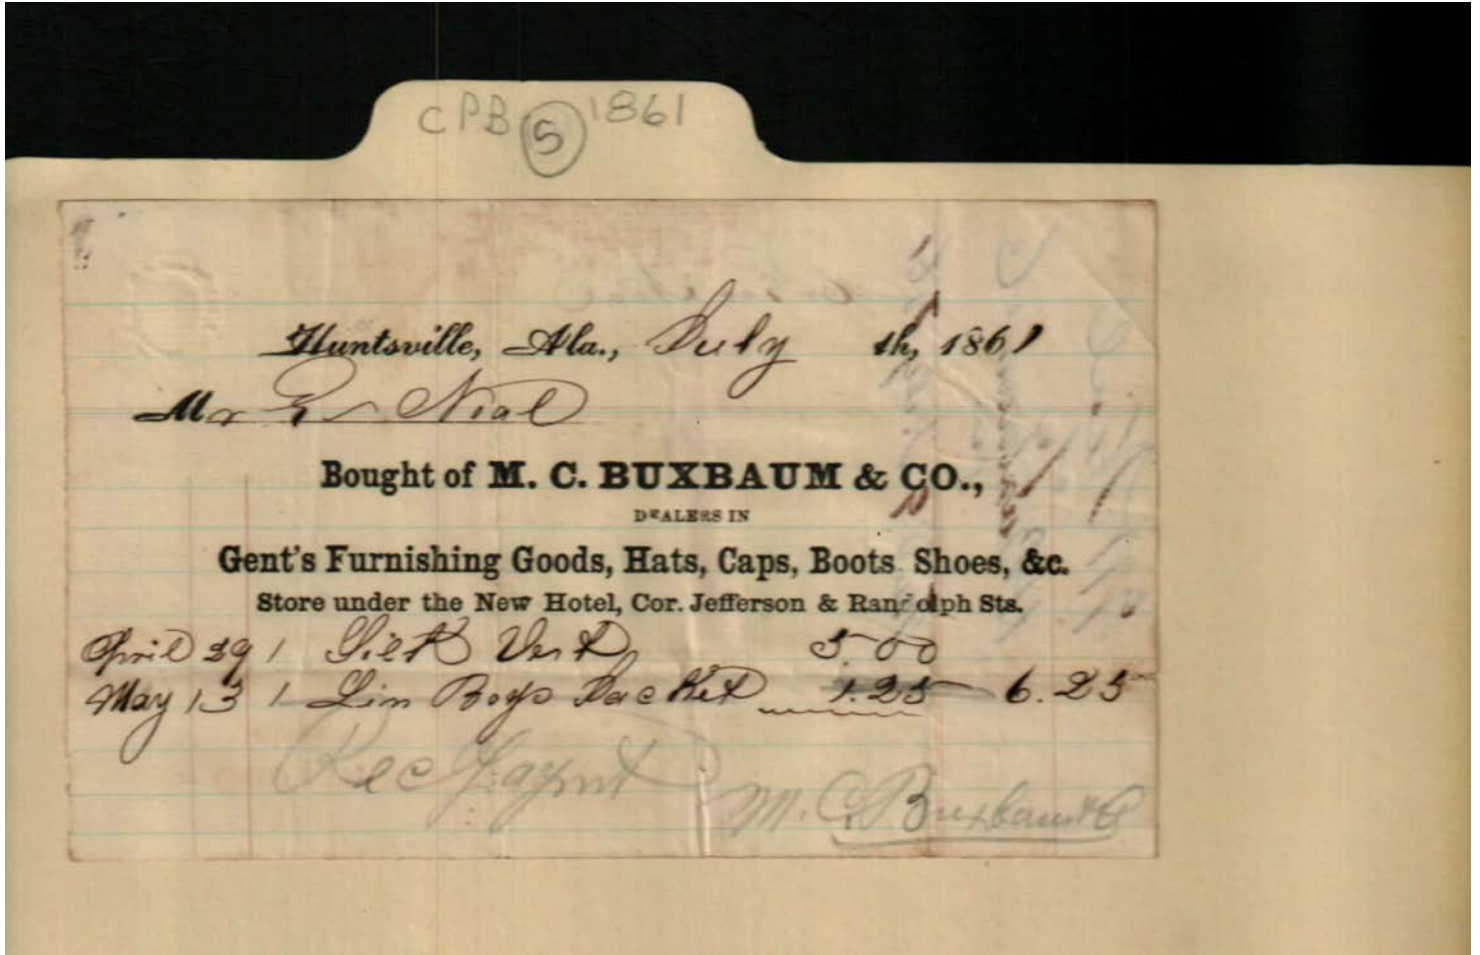 CPB 5 1861
Huntsville, Ala., July th, 1861
Mr G Neal
Bought of M. C. BUXBAUM & CO.,
DEALERS IN
Gent's Furnishing Goods, Hats, Caps, Boots Shoes, &c.
Store under the New Hotel, Cor. Jefferson & Randolph Sts.
April 29 1 Silk Vest 5.00
May 13 1 Lin Boys Jacket 1.25 6.25
Rec Paymt
M. C. Buxbaum & Co